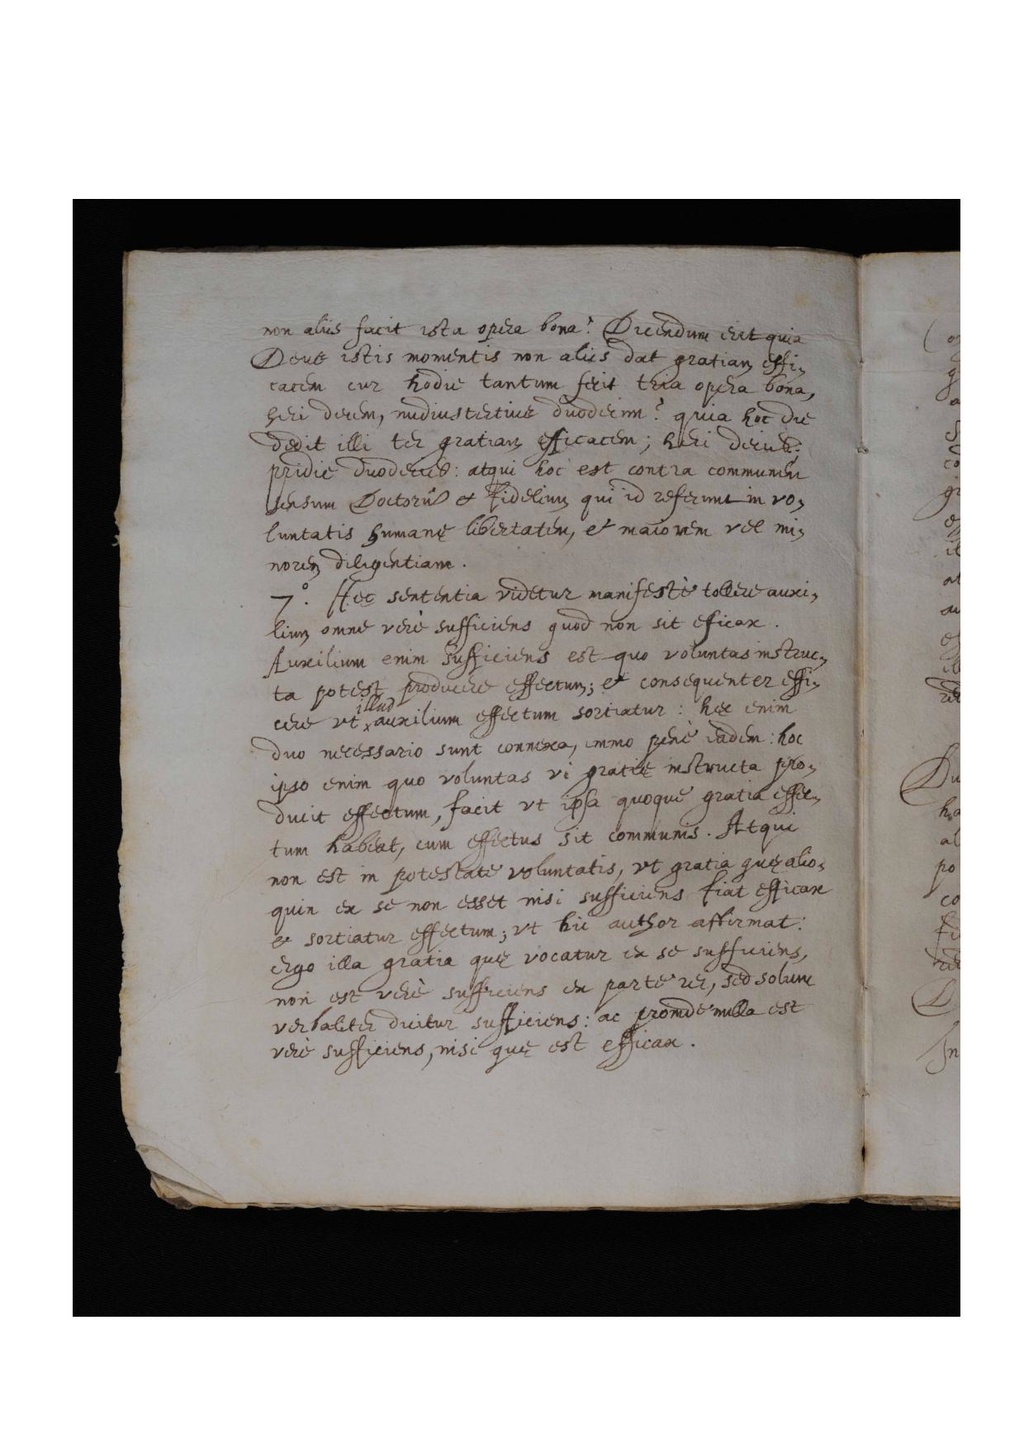 non aliis facit ista opera bona? Dicendum erit quia
Deus istis momentis non aliis dat gratiam effi,
cacem cur hodie tantum fecit tria opera bona,
heri decem, nudiustertius duodecim? quia hoc die
dedit illi ter gratiam efficacem; heri decies:
pridie duodecies: atqui hoc est contra communem
sensum Doctorũ & Fidelium qui id referunt in vo,
luntatis humanę libertatem, & maiorem vel mi,
norem diligentiam.
7.º Hęc sententia videtur manifestè tollere auxi,
lium omne verè sufficiens quod non sit eficax.
Auxilium enim sufficiens est quo voluntas instruc,
ta potest producere effectum; & consequenter effi,
illud
cere vt auxilium effectum sortiatur: hęc enim
duo necessario sunt connexa, immo penè eadem: hoc
ipso enim quo voluntas vi gratię instructa pro,
ducit effectum, facit vt ipsa quoque gratia effec,
tum habeat, cum effectus sit communis. Atqui
non est in potestate voluntatis, vt gratia quę alio,
quin ex se non esset nisi sufficiens fiat efficax
& sortiatur effectum; vt hic author affirmat:
ergo illa gratia quę vocatur ex se sufficiens,
non est verè sufficiens ex parte rei, sed solum
verbaliter dicitur sufficiens: ac proinde nulla est
verè sufficiens, nisi quę est efficax.